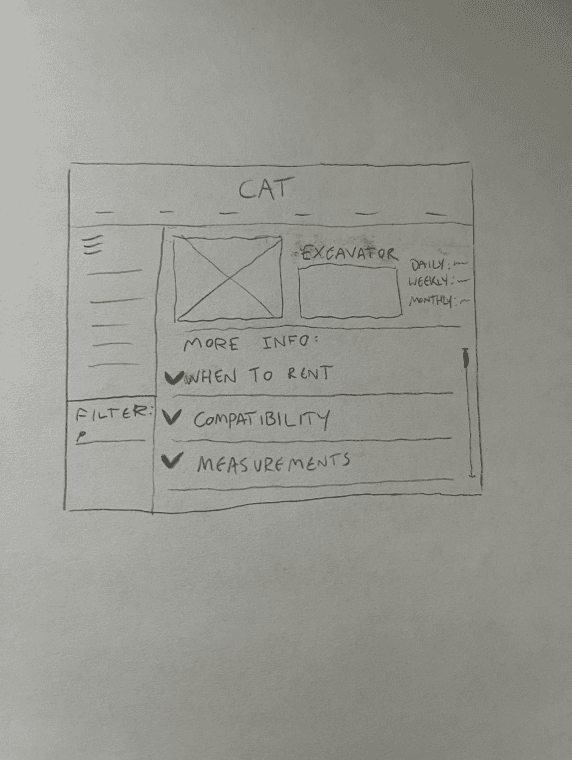 CAT
EXCAVATOR
DAILY:
WEEKLY:
MONTHLY:
MORE INFO:
WHEN TO RENT
FILTER:
COMPATIBILITY
MEASUREMENTS